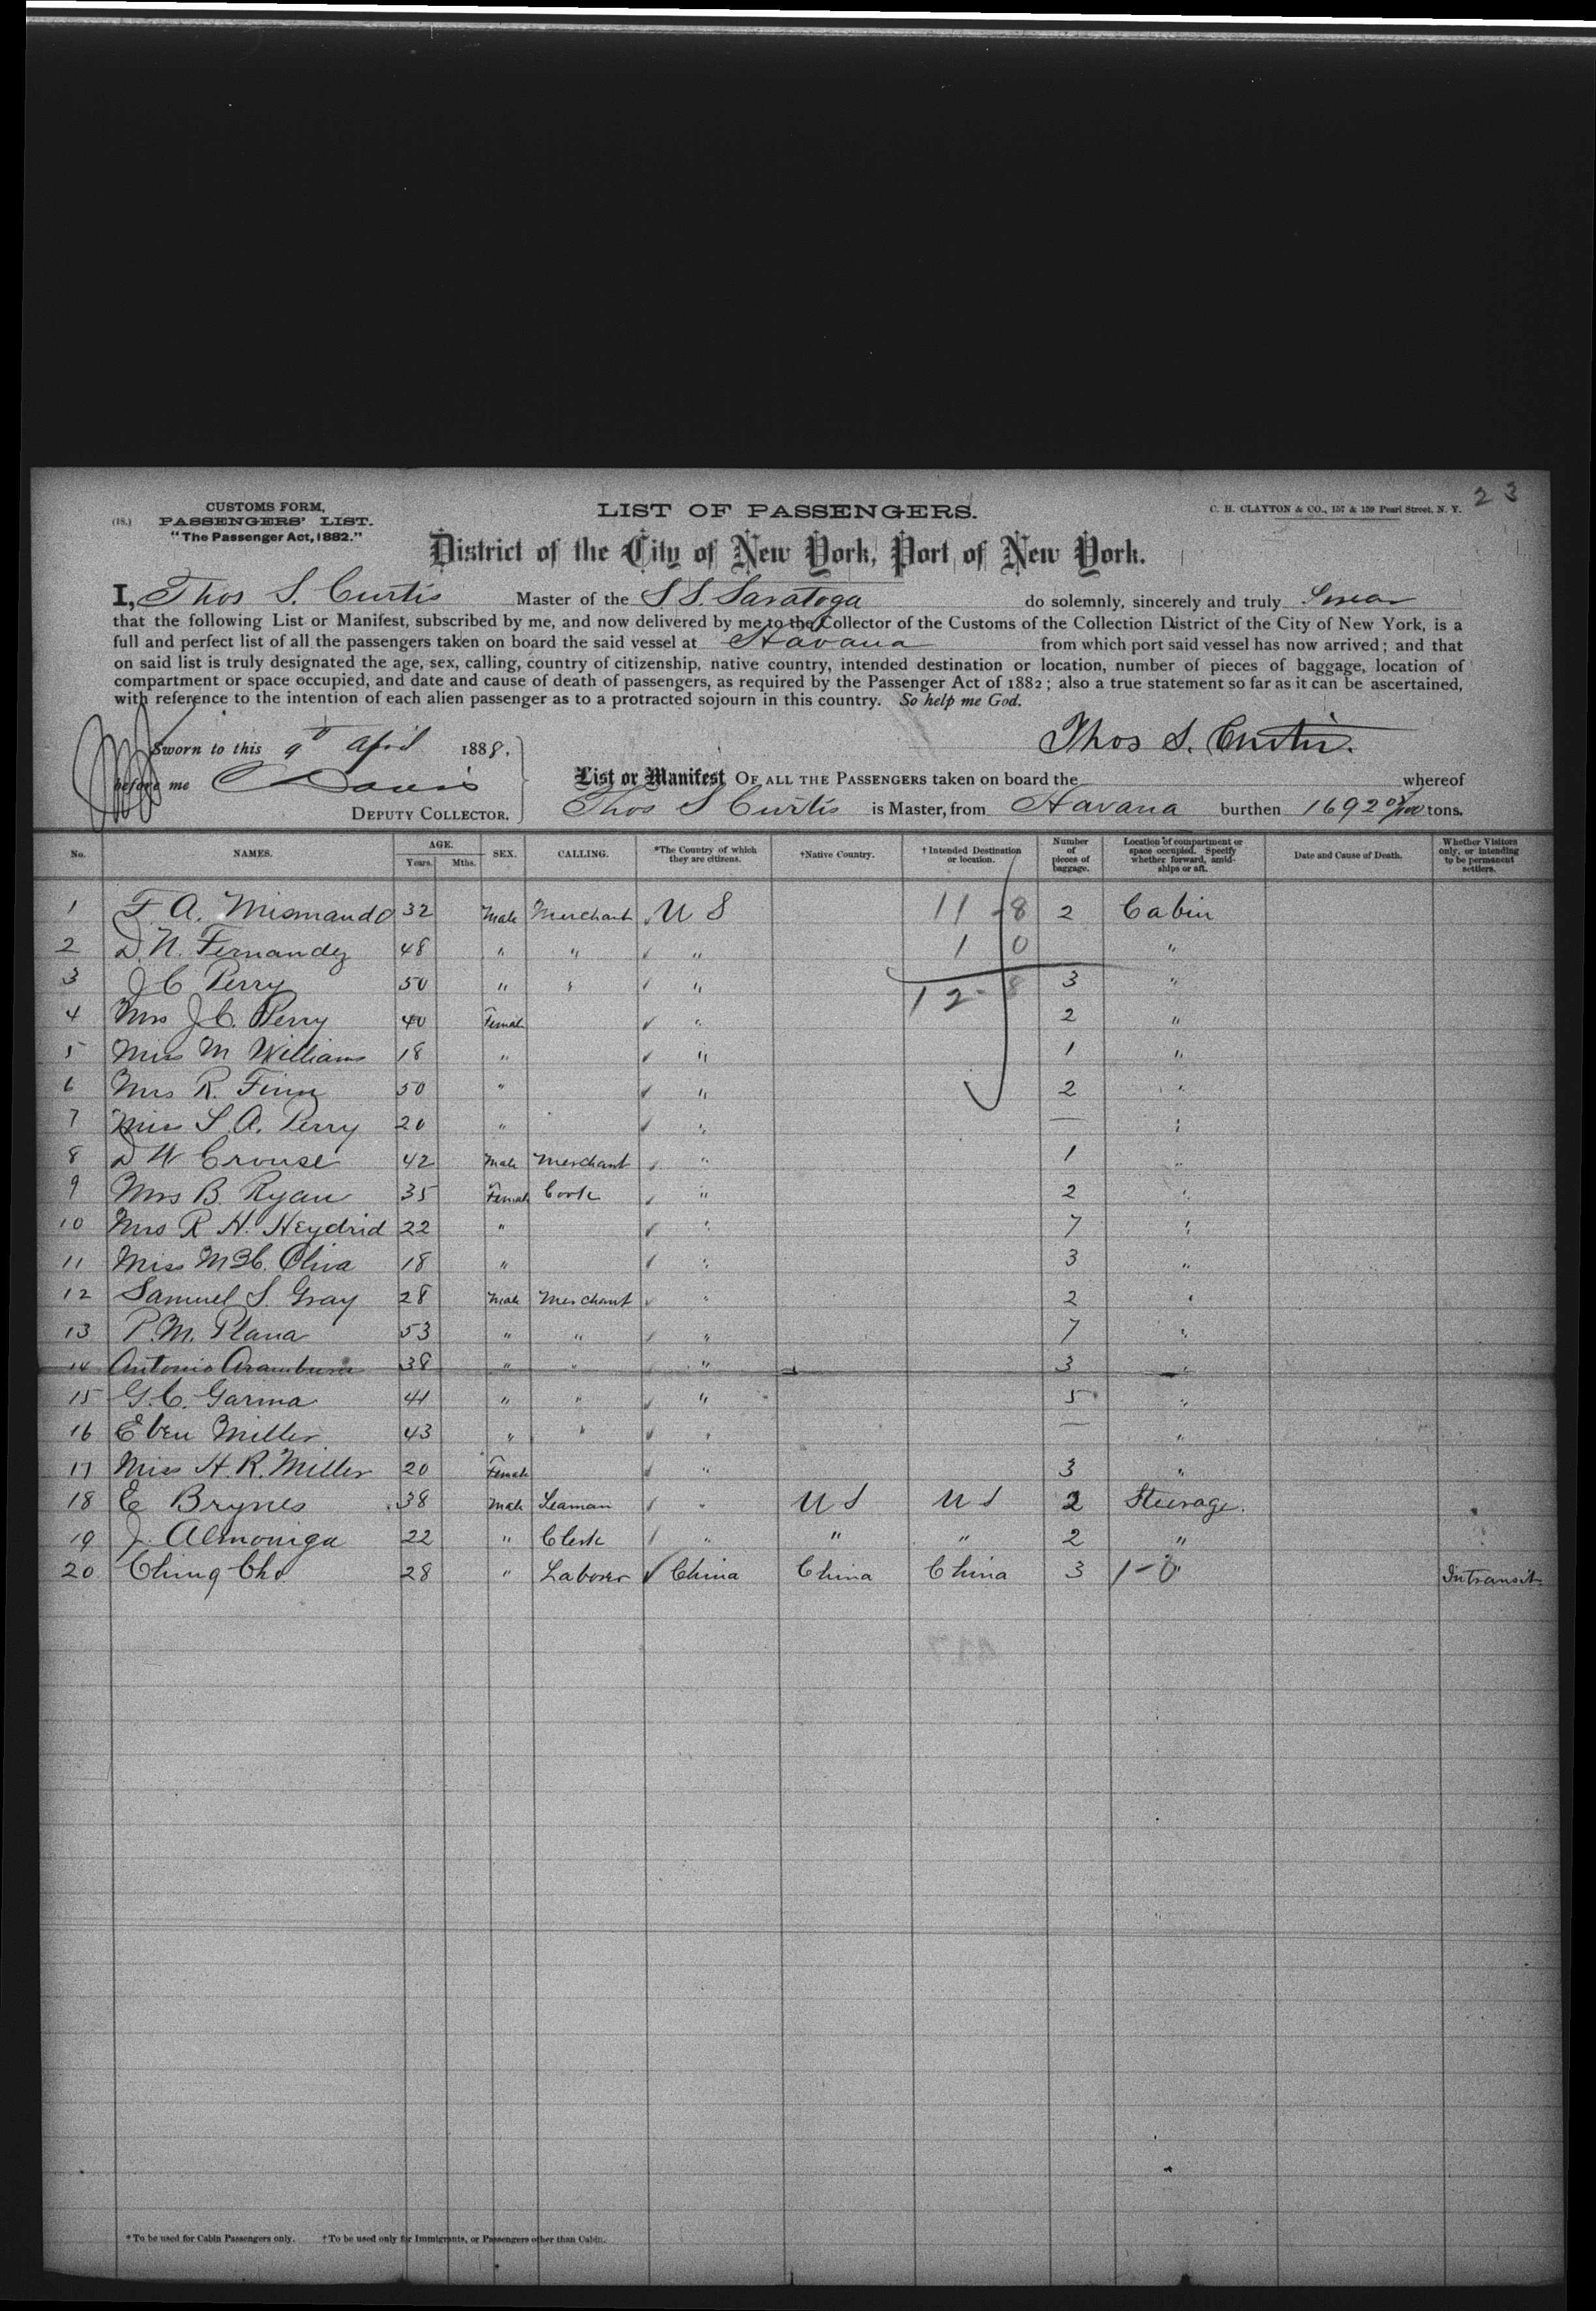 23
CUSTOMS FORM,
(18.) PASSENGERS' LIST.
"The Passenger Act, 1882."
LIST OF PASSENGERS.
C. H. CLAYTON & CO., 157 & 159 Pearl Street, N. Y.
District of the City of New York, Port of New York.
I, Thos S. Curtis Master of the S.S. Saratoga do solemnly, sincerely and truly Swear
that the following List or Manifest, subscribed by me, and now delivered by me to the Collector of the Customs of the Collection District of the City of New York, is a
full and perfect list of all the passengers taken on board the said vessel at Havana from which port said vessel has now arrived; and that
on said list is truly designated the age, sex, calling, country of citizenship, native country, intended destination or location, number of pieces of baggage, location of
compartment or space occupied, and date and cause of death of passengers, as required by the Passenger Act of 1882; also a true statement so far as it can be ascertained,
with reference to the intention of each alien passenger as to a protracted sojourn in this country. So help me God.
Thos S. Curtis.
Sworn to this 9th April 1888.
before me Davis
DEPUTY COLLECTOR.
List or Manifest OF ALL THE PASSENGERS taken on board the whereof
Thos S Curtis is Master, from Havana burthen 1692 tons.
No. NAMES. AGE. Years. Mths. SEX. CALLING. *The Country of which they are citizens. †Native Country. †Intended Destination or location. Number of pieces of baggage. Location of compartment or space occupied. Specify whether forward, amidships or aft. Date and Cause of Death. Whether Visitors only, or intending to be permanent settlers.
1 F. A. Mismando 32 Male Merchant U S 11-8 2 Cabin
2 D. N. Fernandez 48 " " " 1 0 "
3 J C Perry 50 " " " 3 "
12-8
4 Mrs J. C. Perry 40 Female " 2 "
5 Miss M Williams 18 " " 1 "
6 Mrs R. Finn 50 " " 2 "
7 Miss S. A. Perry 20 " " — "
8 D W Crouse 42 Male Merchant " 1 "
9 Mrs B. Ryan 35 Female Cook " 2 "
10 Mrs R H. Heydrid 22 " " 7 "
11 Miss M Oliva 18 " " 3 "
12 Samuel S. Gray 28 Male Merchant " 2 "
13 P. M. Plana 53 " " " 7 "
14 Antonio Aramburu 38 " " " 3 "
15 G. C. Garma 41 " " " 5 "
16 Eben Miller 43 " " " — "
17 Miss H. R. Miller 20 Female " 3 "
18 E Brynes 38 Male Seaman " U S U S 2 Steerage.
19 J. Almoniga 22 " Clerk " " " 2 "
20 Ching Cho 28 " Laborer China China China 3 1-0 " In transit
*To be used for Cabin Passengers only. †To be used only for Immigrants, or Passengers other than Cabin.